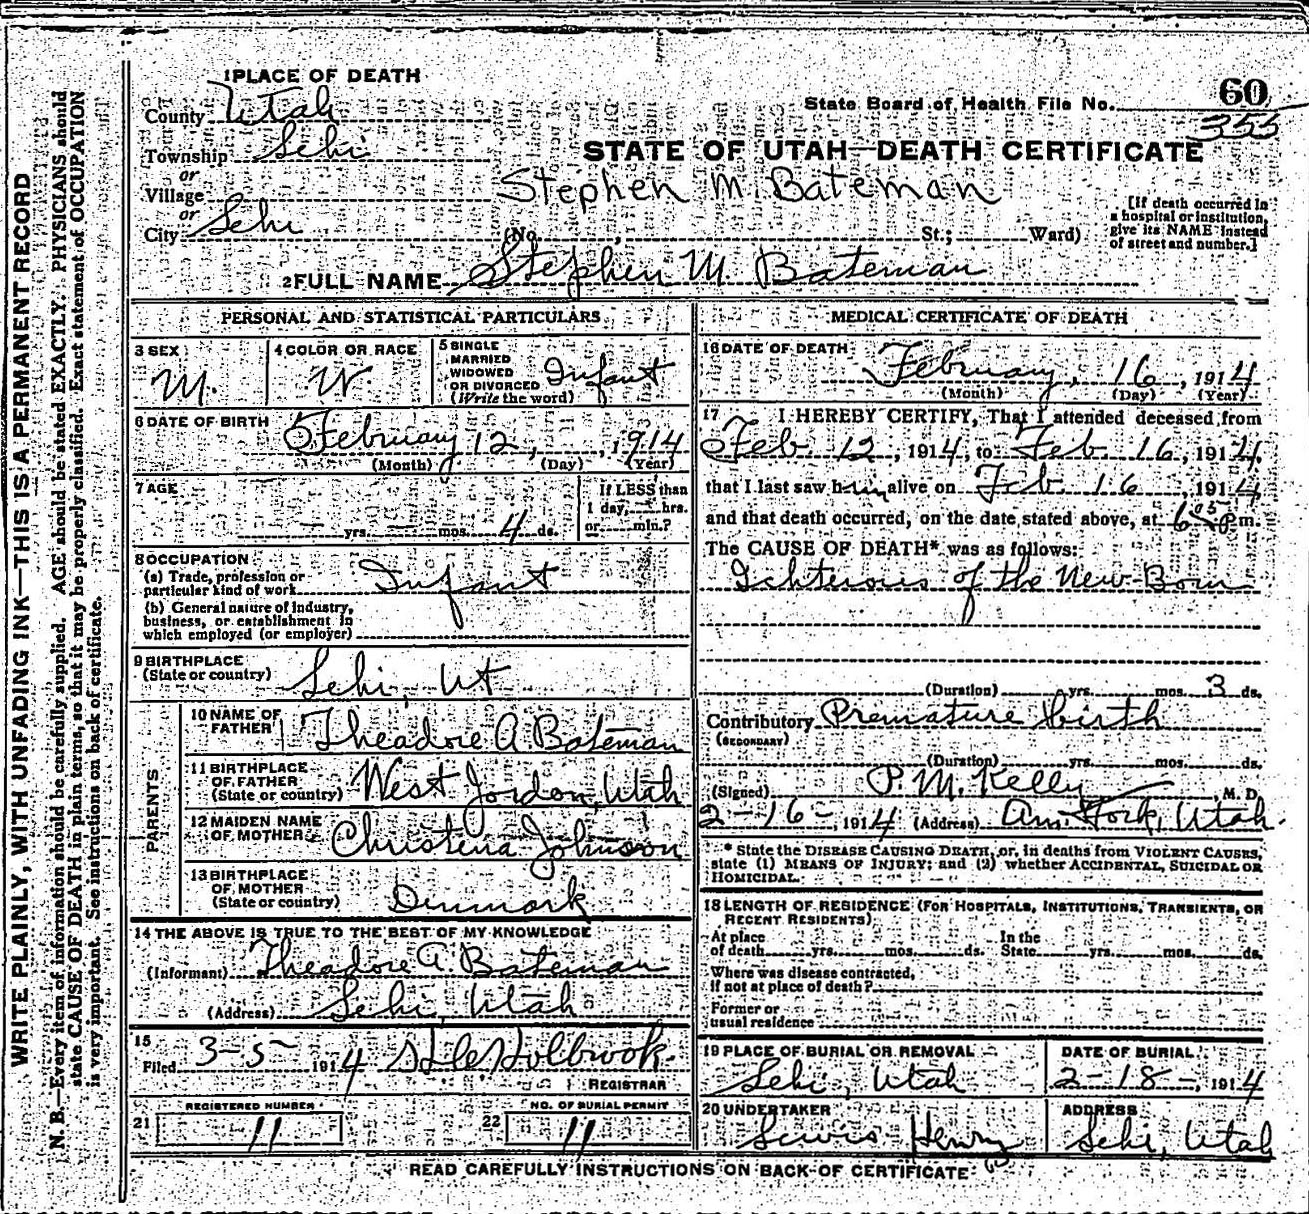 1 PLACE OF DEATH
County Utah
Township Lehi
or
Village
or
City Lehi
State Board of Health File No. 60
355
STATE OF UTAH—DEATH CERTIFICATE
Stephen M. Bateman
(No. , St.; Ward)
[If death occurred in
a hospital or institution,
give its NAME instead
of street and number.]
2 FULL NAME Stephen M. Bateman
PERSONAL AND STATISTICAL PARTICULARS
3 SEX
M.
4 COLOR OR RACE
W.
5 SINGLE
MARRIED
WIDOWED
OR DIVORCED
(Write the word)
Infant
6 DATE OF BIRTH
February 12, , 1914
(Month) (Day) (Year)
7 AGE
yrs. mos. 4 ds.
If LESS than
1 day, hrs.
or min.?
8 OCCUPATION
(a) Trade, profession or
particular kind of work Infant
(b) General nature of Industry,
business, or establishment in
which employed (or employer)
9 BIRTHPLACE
(State or country) Lehi, Ut
PARENTS
10 NAME OF
FATHER Theadore A Bateman
11 BIRTHPLACE
OF FATHER
(State or country) West Jordon, Utah
12 MAIDEN NAME
OF MOTHER Christena Johnson
13 BIRTHPLACE
OF MOTHER
(State or country) Denmark
14 THE ABOVE IS TRUE TO THE BEST OF MY KNOWLEDGE
(Informant) Theadore A Bateman
(Address) Lehi, Utah
15
Filed 3-5- 1914 Holbrook.
REGISTRAR
REGISTERED NUMBER
21 11
NO. OF BURIAL PERMIT
22 11
MEDICAL CERTIFICATE OF DEATH
16 DATE OF DEATH
February, 16, 1914
(Month) (Day) (Year)
17 I HEREBY CERTIFY, That I attended deceased from
Feb. 12, 1914, to Feb 16, 1914,
that I last saw him alive on Feb. 16, 1914,
and that death occurred, on the date stated above, at 6 05 P.m.
The CAUSE OF DEATH* was as follows:
Ichterous of the New-Born
(Duration) yrs. mos. 3 ds.
Contributory Premature birth
(SECONDARY)
(Duration) yrs. mos. ds.
(Signed) P. M. Kelly M. D.
2-16-, 1914 (Address) Am. Fork, Utah.
* State the DISEASE CAUSING DEATH, or, in deaths from VIOLENT CAUSES,
state (1) MEANS OF INJURY; and (2) whether ACCIDENTAL, SUICIDAL OR
HOMICIDAL.
18 LENGTH OF RESIDENCE (FOR HOSPITALS, INSTITUTIONS, TRANSIENTS, OR
RECENT RESIDENTS)
At place
of death yrs. mos. ds.
In the
State yrs. mos. ds.
Where was disease contracted,
If not at place of death?
Former or
usual residence
19 PLACE OF BURIAL OR REMOVAL
Lehi, Utah
DATE OF BURIAL
2-18-, 1914
20 UNDERTAKER
Lewis Henry
ADDRESS
Lehi, Utah
READ CAREFULLY INSTRUCTIONS ON BACK OF CERTIFICATE
WRITE PLAINLY, WITH UNFADING INK—THIS IS A PERMANENT RECORD
N. B.—Every item of information should be carefully supplied. AGE should be stated EXACTLY. PHYSICIANS should
state CAUSE OF DEATH in plain terms, so that it may be properly classified. Exact statement of OCCUPATION
is very important. See instructions on back of certificate.